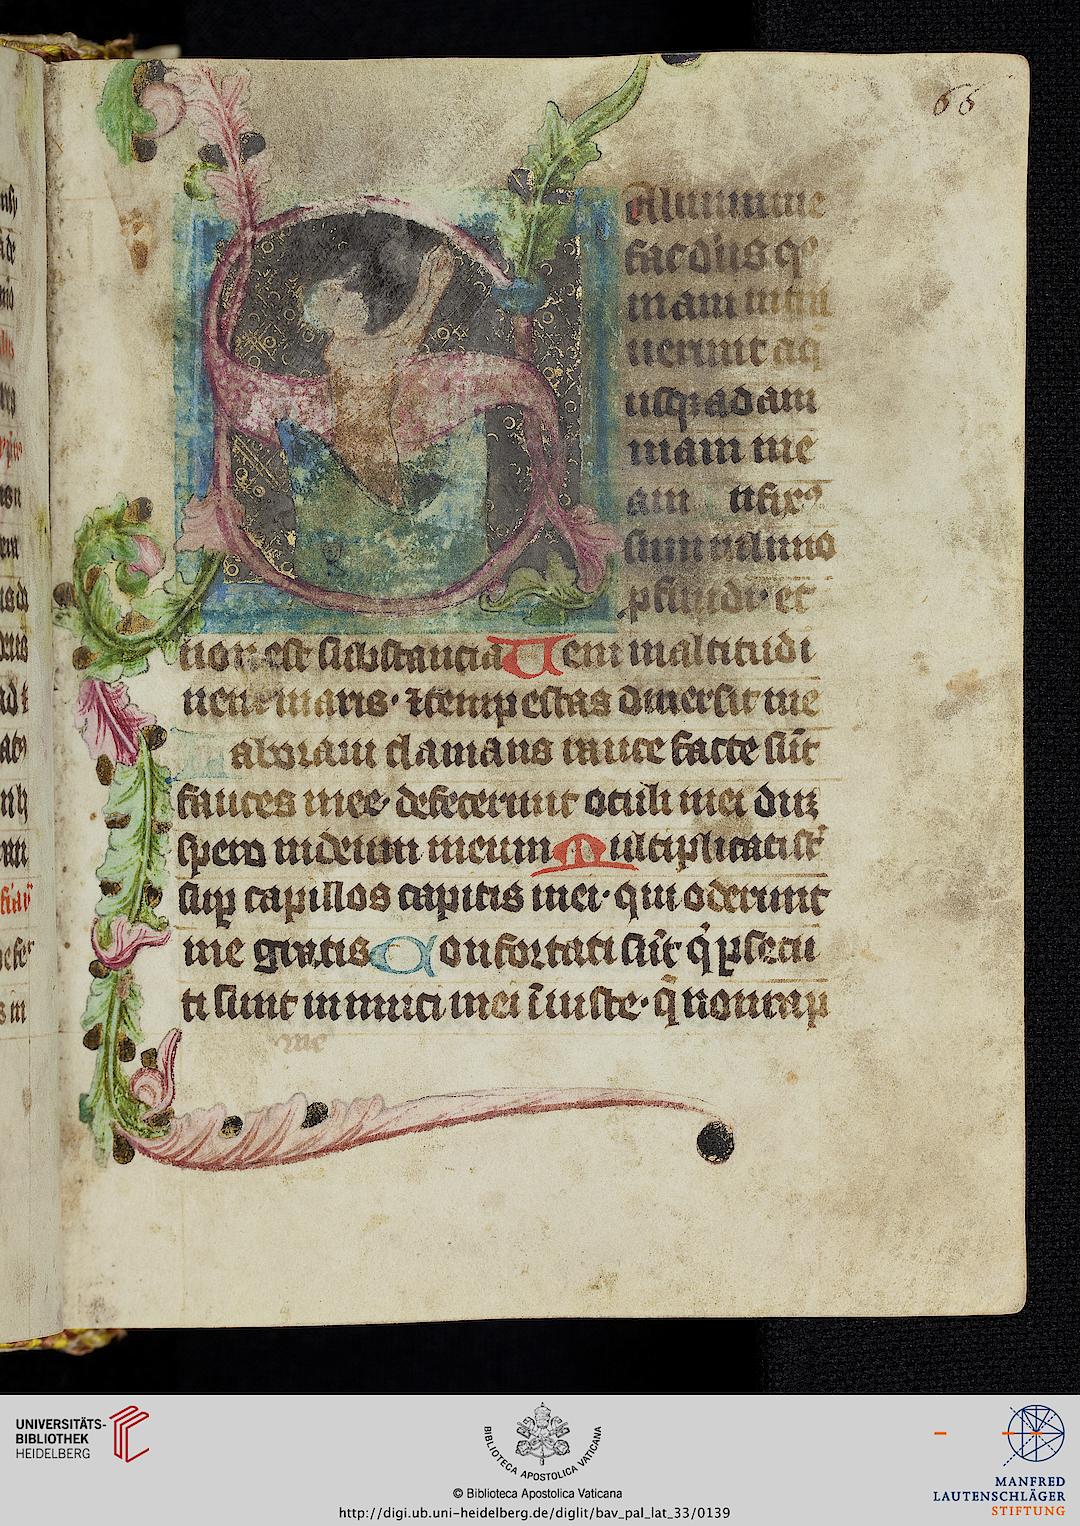 66
Aluumme
fac deus qm
niam intra
uerunt aq̄
usq; ad am
mam me
am Infix9
sum in limo
p̱fundi· et
non est substancia Ueni in altitudi
nem maris· ⁊ tempestas dimersit me
Laboraui clamans rauce facte sūt
fauces mee· defecerunt oculi mei duȝ
spero in deum meum Multiplicati sūt
sup capillos capitis mei· qui oderunt
me gratis Confortati sūt q̇ p̱secu
ti sunt inimici mei īiuste· q̄ non rap
UNIVERSITÄTS-
BIBLIOTHEK
HEIDELBERG
BIBLIOTECA APOSTOLICA VATICANA
© Biblioteca Apostolica Vaticana
http://digi.ub.uni-heidelberg.de/diglit/bav_pal_lat_33/0139
MANFRED
LAUTENSCHLÄGER
STIFTUNG